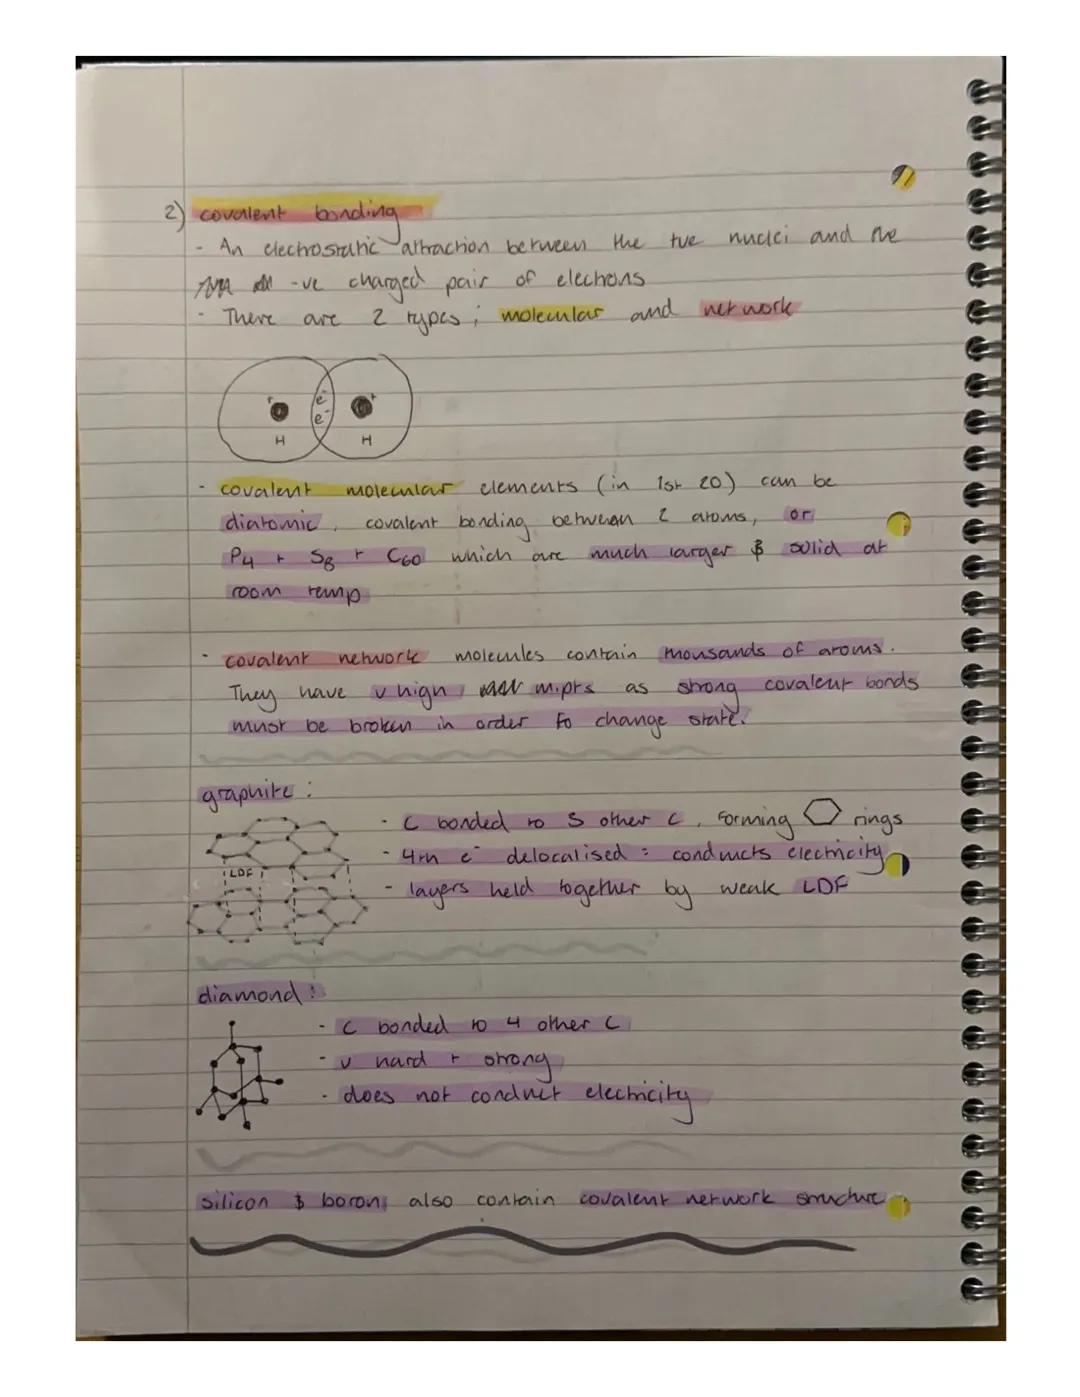 2) covalent bonding
- An electrostatic attraction between the +ve nuclei and the
-ve charged pair of electrons
- There are 2 types; molecular and network
+ e⁻ +
e⁻
H H
- covalent molecular elements (in 1st 20) can be
diatomic, covalent bonding between 2 atoms, or
P4 + S8 + C60 which are much larger & solid at
room temp
- covalent network molecules contain thousands of atoms.
They have v high m.pts as strong covalent bonds
must be broken in order to change state.
graphite:
- C bonded to 3 other C, forming rings
- 4th e⁻ delocalised = conducts electricity
LDF
- layers held together by weak LDF
diamond:
- C bonded to 4 other C
- v hard + strong
- does not conduct electricity
silicon & boron also contain covalent network structure